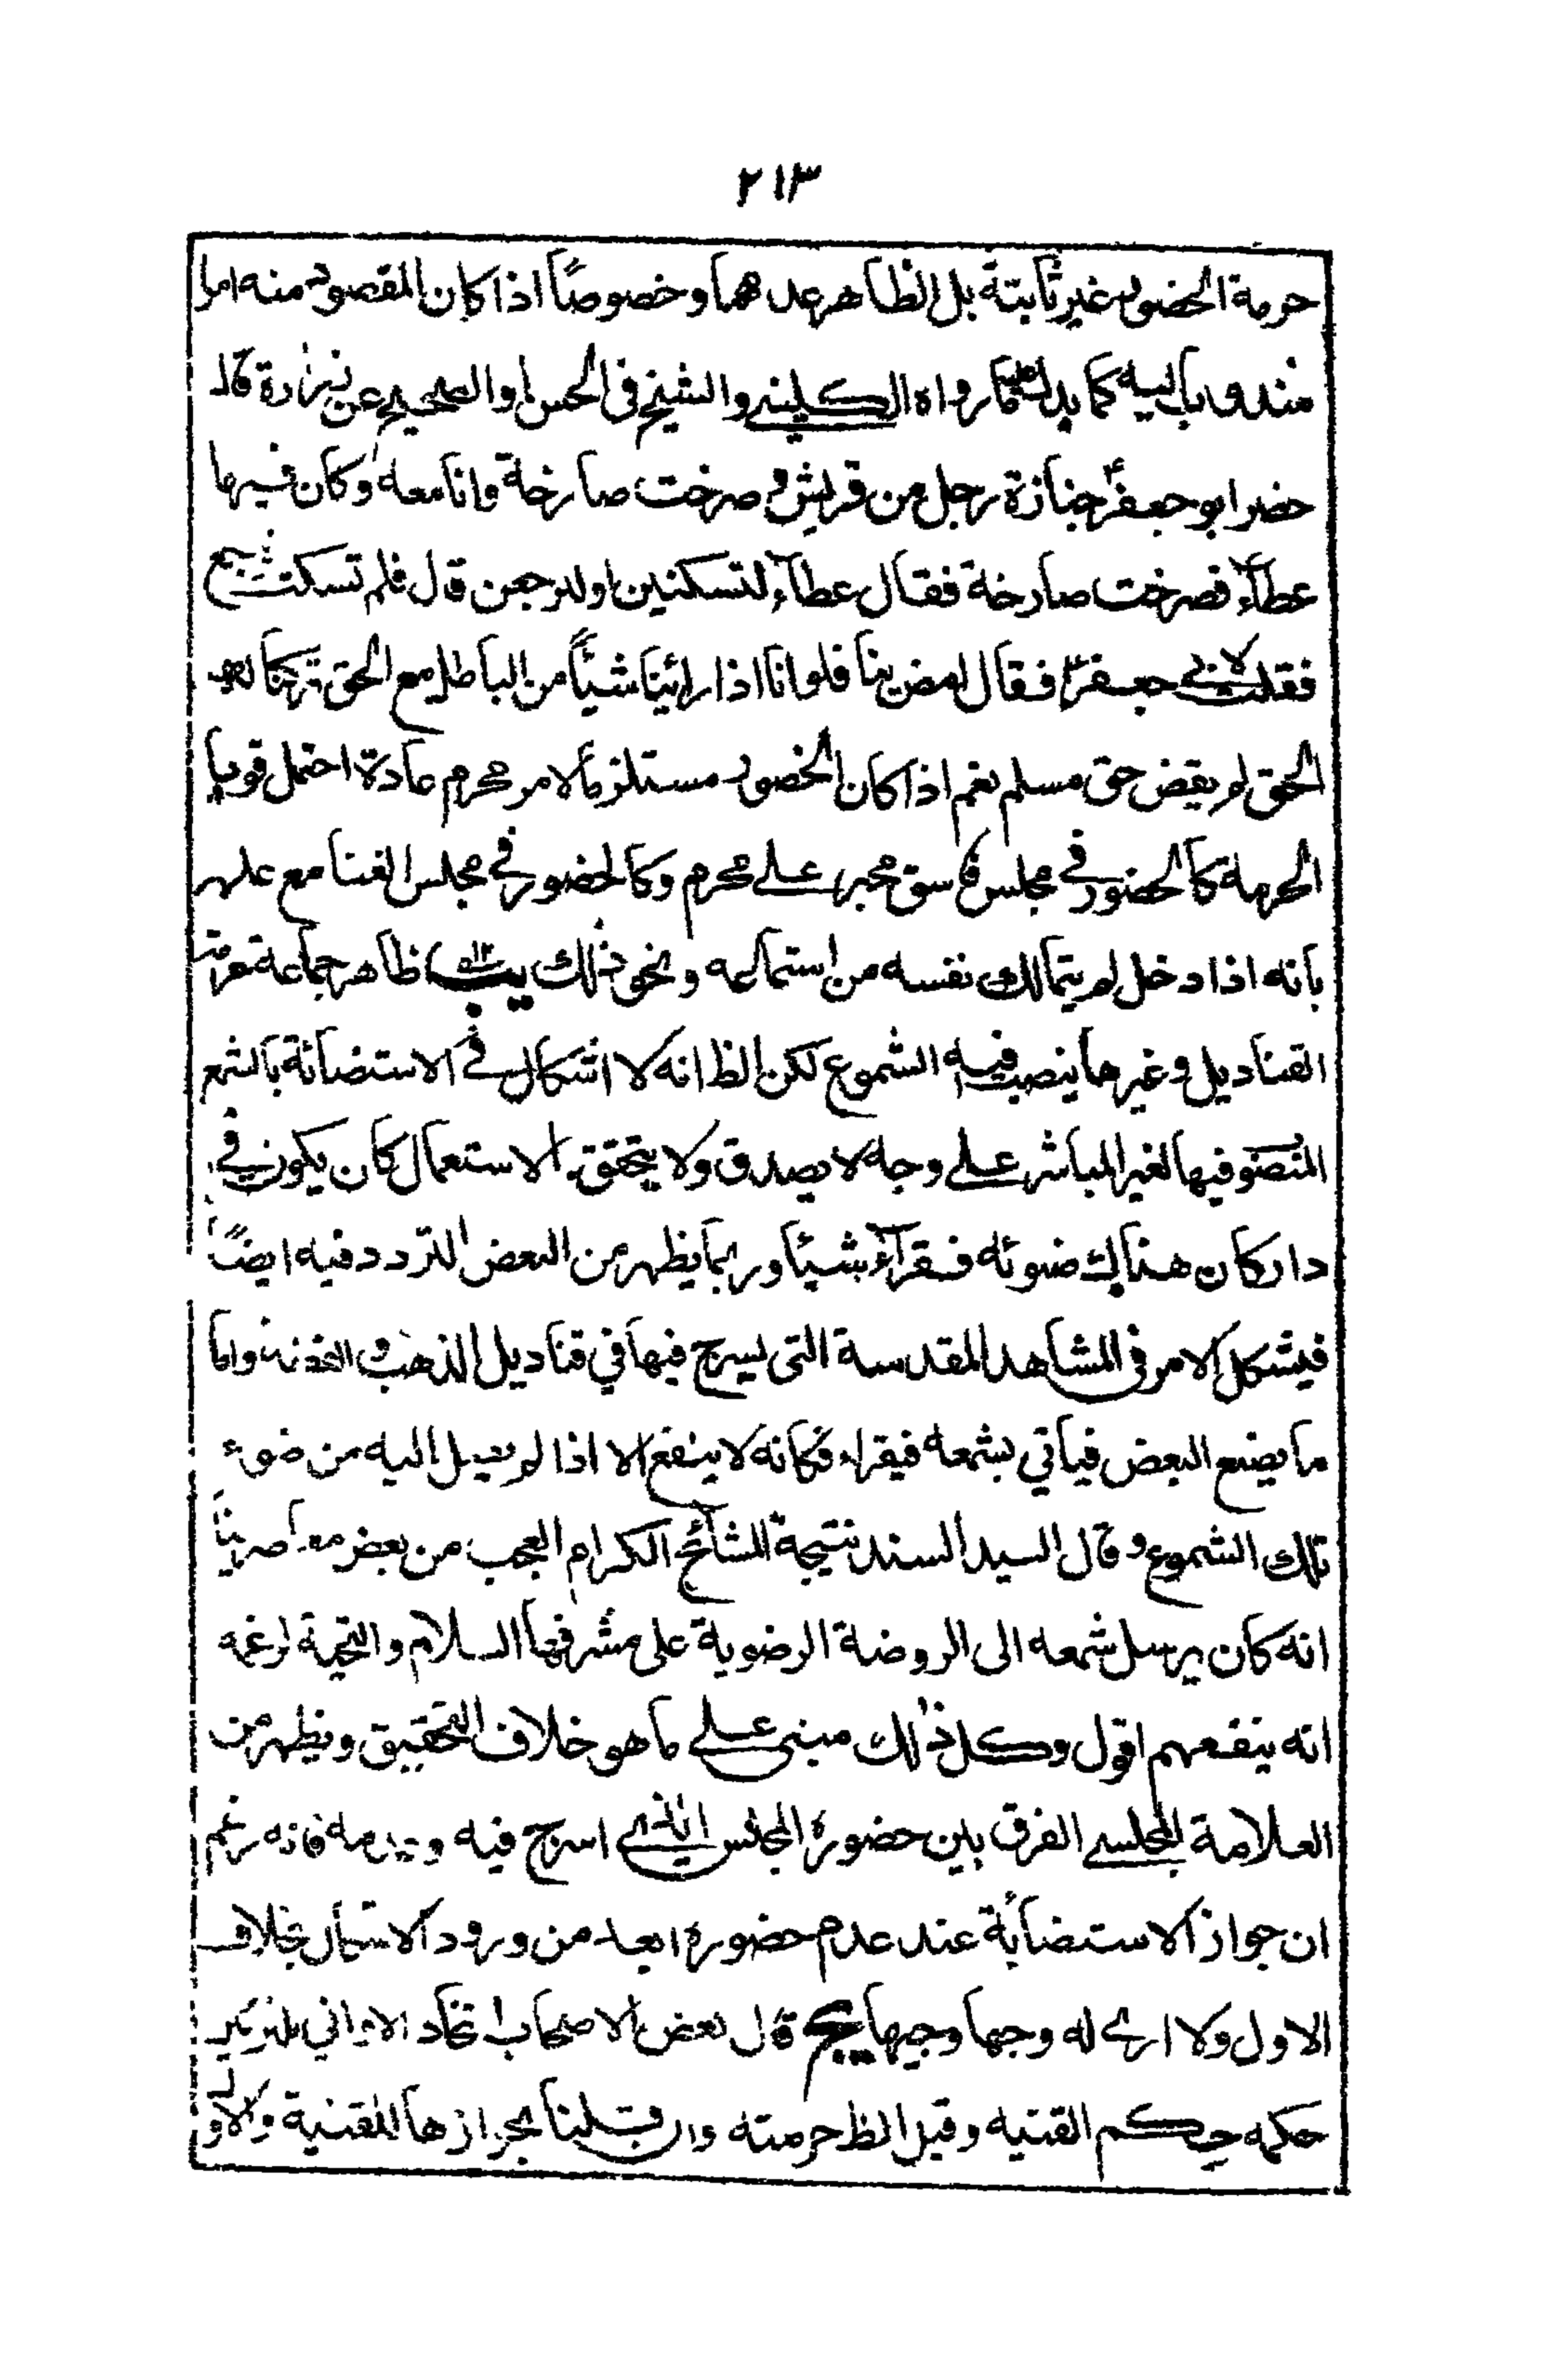 ٢١٣
حرمة الحضور غير ثابتة بل الظاهر عدمهما وخصوصاً اذا كان المقصود منه امرا
مندوبا اليه كما يدل عليه ما رواه الكليني والشيخ في الحسن او الصحيح عن زرارة قال
حضر ابو جعفر ع جنازة رجل من قريش وصرخت صارخة وانا معه وكان فيها
عطاء فصرخت صارخة فقال عطاء لتسكتين او لنرجعن قال فلم تسكت فرجع
فقلت لابي جعفر ع فقال امض بنا فلو انا اذا راينا شيئاً من الباطل مع الحق تركنا له
الحق لم يقض حق مسلم نعم اذا كان الحضور مستلزما لامر محرم عادة احتمل قويا
الحرمة كالحضور في مجلس فاسق مجبر على محرم وكالحضور في مجلس الغنا مع علمه
بانه اذا دخل لم يتمالك نفسه من استماعه ونحو ذلك ظاهر جماعة حرمة
القناديل وغيرها ينصب فيه الشموع لكن الظ انه لا اشكال في الاستضائة بالشمع
المنصوب فيها لغير المباشر على وجه لا يصدق ولا يتحقق الاستعمال كان يكون في
دار كان هناك ضوئه فقرأ شيئا وربما يظهر من البعض التردد فيه ايضاً
فيشكل الامر في المشاهد المقدسة التي يسرج فيها في قناديل الذهب والفضة واما
ما يصنع البعض فياتي بشمعه فيقراء فكانه لا ينفع الا اذا لم يصل اليه من ضوء
تلك الشموع وقال السيد السند نتيجة المشائخ الكرام العجب من بعض معاصرينا
انه كان يرسل شمعه الى الروضة الرضوية على مشرفها السلام والتحية لزعمه
انه ينفعهم اقول وكل ذلك مبني على ما هو خلاف التحقيق ويظهر من
العلامة المجلسي الفرق بين حضوره المجلس الذي اسرج فيه وعدمه فانه زعم
ان جواز الاستضائة عند عدم حضوره ابعد من ورود الاشكال بخلاف
الاول ولا ارى له وجها وجيها قال بعض الاصحاب اتخاذ الاواني للتزيين
حكمه حكم القنيه وقيل الظ حرمته وان قلنا بجوازها للقنية والاول